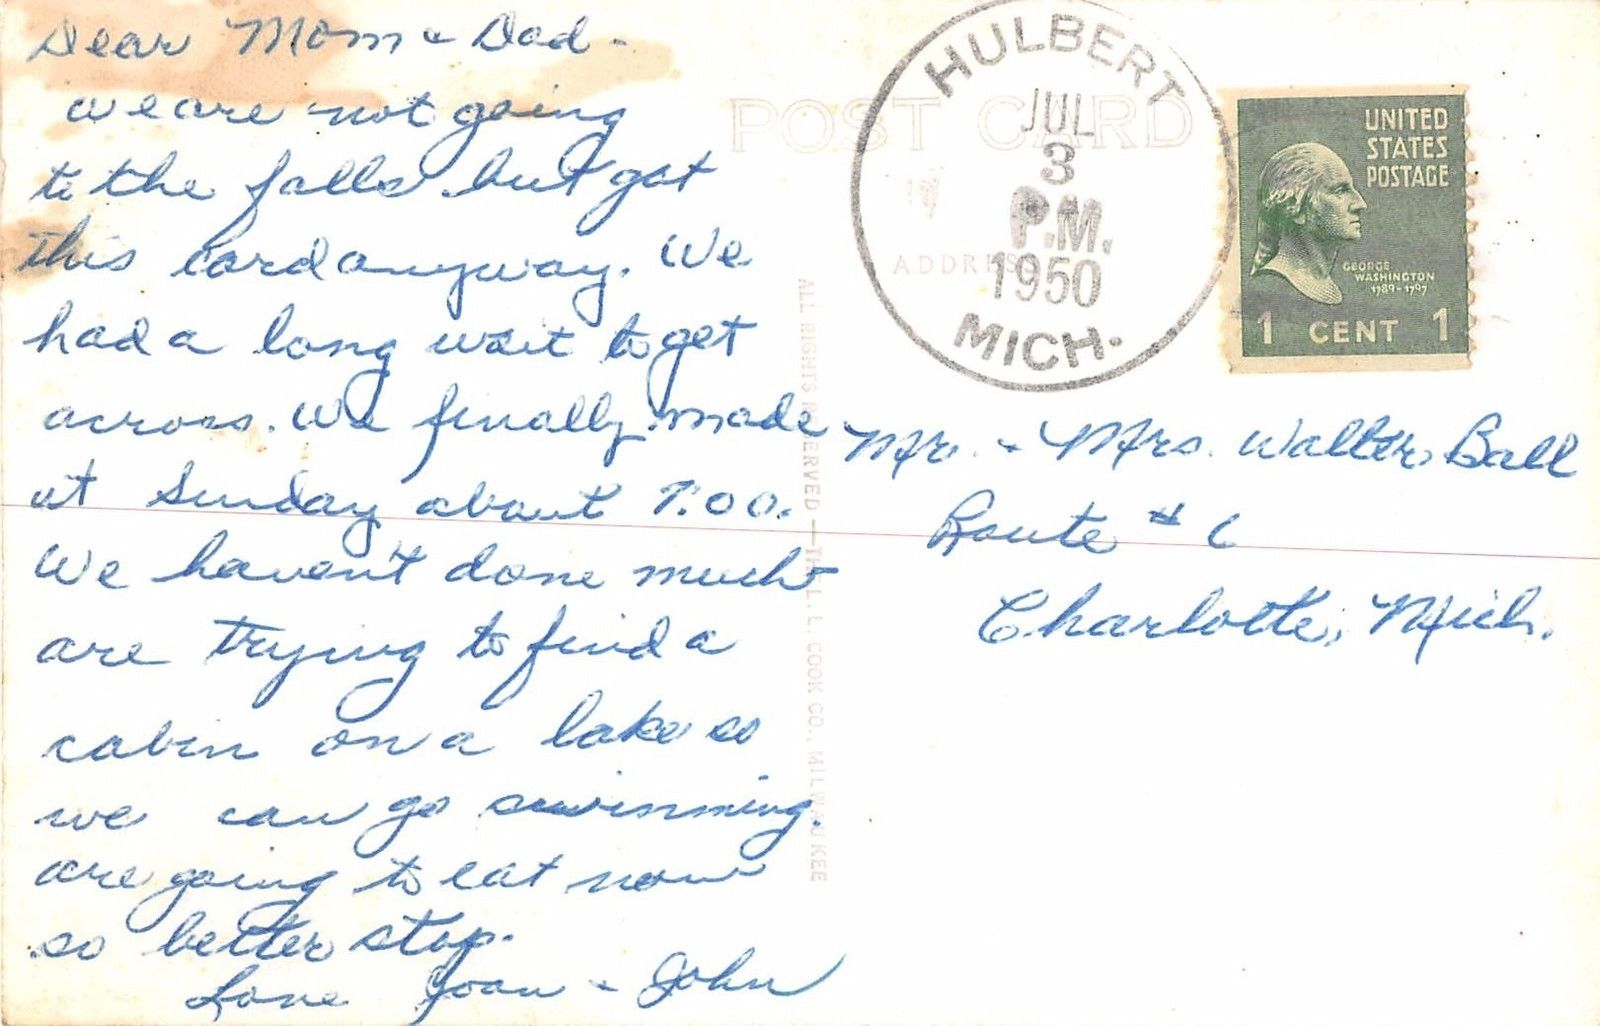 Dear Mom & Dad -
We are not going
to the falls but got
this card anyway. We
had a long wait to get
across. We finally made
at Sunday about 7:00.
We haven't done much
are trying to find a
cabin on a lake so
we can go swimming.
are going to eat now
so better stop.
Love Joan & John
POST CARD
ADDRESS
HULBERT
JUL
3
P.M.
1950
MICH.
UNITED
STATES
POSTAGE
GEORGE
WASHINGTON
1789-1797
1 CENT 1
ALL RIGHTS RESERVED — THE L. L. COOK CO., MILWAUKEE
Mr. & Mrs. Walter Ball
Route # 6
Charlotte, Mich.